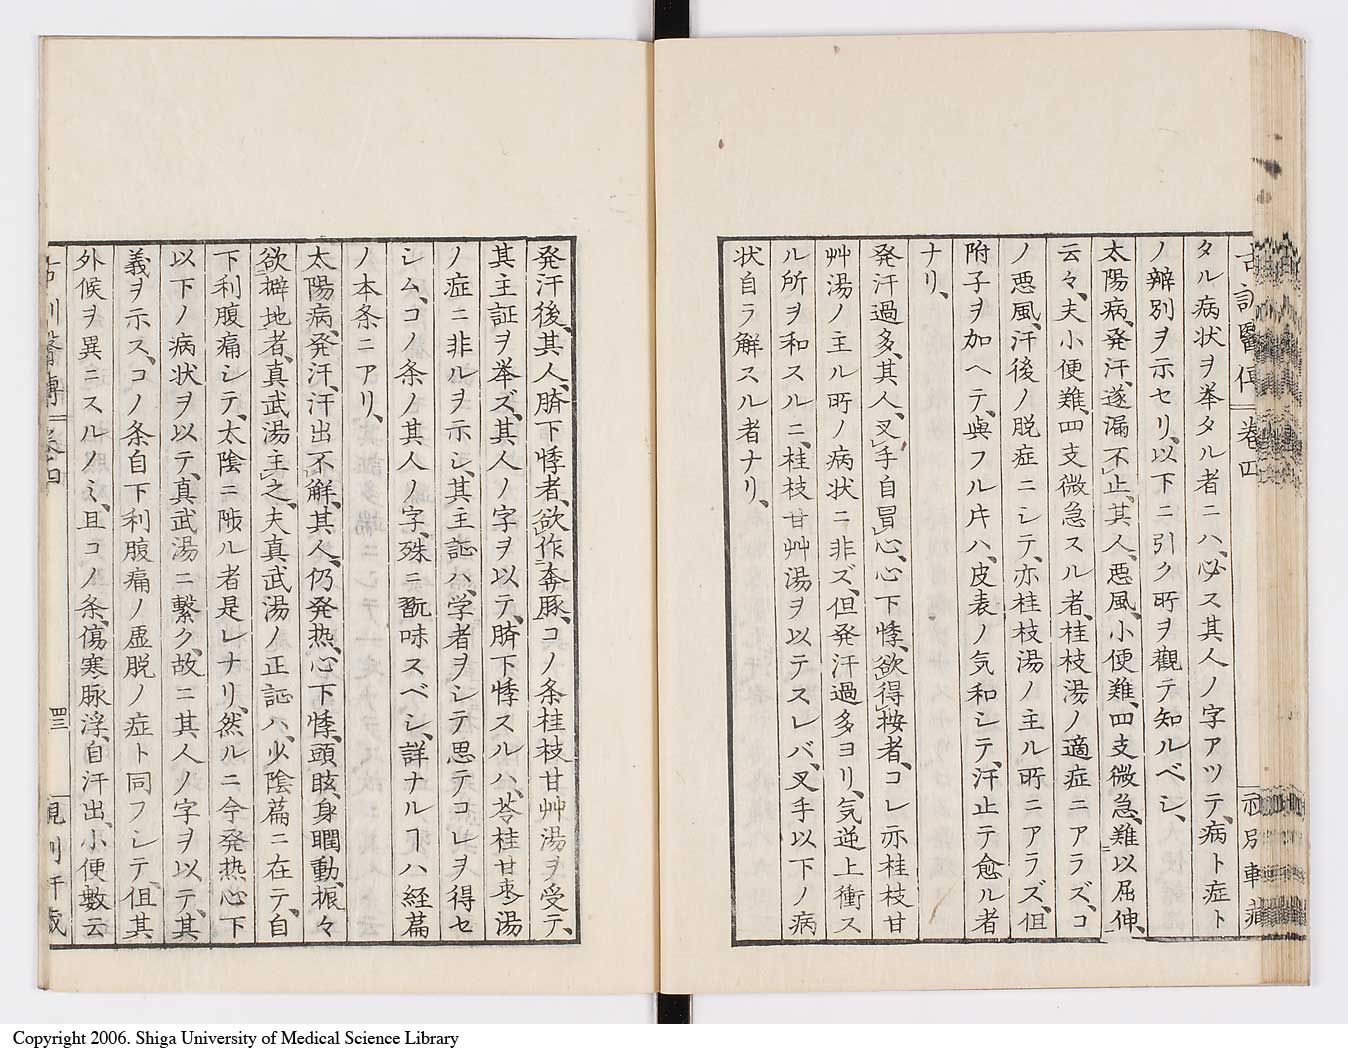 タル病状ヲ挙タル者ニハ、必ス其人ノ字アツテ、病ト症ト
ノ辨別ヲ示セリ、以下ニ引ク所ヲ觀テ知ルベシ、
太陽病、発汗、遂漏不止、其人、悪風、小便難、四支微急、難以屈伸、
云々、夫小便難、四支微急スル者、桂枝湯ノ適症ニアラズ、コ
ノ悪風、汗後ノ脱症ニシテ、亦桂枝湯ノ主ル所ニアラズ、但
附子ヲ加ヘテ、與フル𪜈ハ、皮表ノ気和シテ、汗止テ愈ル者
ナリ、
発汗過多、其人、叉手自冒心、心下悸、欲得桉者、コレ亦桂枝甘
艸湯ノ主ル所ノ病状ニ非ズ、但発汗過多ヨリ、気逆上衝ス
ル所ヲ和スルニ、桂枝甘艸湯ヲ以テスレバ、叉手以下ノ病
状自ラ解スル者ナリ、
発汗後、其人、臍下悸者、欲作奔豚、コノ条桂枝甘艸湯ヲ受テ、
其主証ヲ挙ズ、其人ノ字ヲ以テ、臍下悸スルハ、苓桂甘枣湯
ノ症ニ非ルヲ示シ、其主証ハ、学者ヲシテ思テコレヲ得セ
シム、コノ条ノ其人ノ字、殊ニ翫味スベシ、詳ナルヿハ経篇
ノ本条ニアリ、
太陽病、発汗、汗出不解、其人、仍発热、心下悸、頭眩、身瞤動、振々
欲擗地者、真武湯主之、夫真武湯ノ正証ハ、少陰篇ニ在テ、自
下利腹痛シテ、太陰ニ陟ル者是レナリ、然ルニ今発热心下
以下ノ病状ヲ以テ、真武湯ニ繋ク、故ニ其人ノ字ヲ以テ、其
義ヲ示ス、コノ条自下利腹痛ノ虚脱ノ症ト同フシテ、但其
外候ヲ異ニスルノミ、且コノ条、傷寒脉浮、自汗出、小便數云
Copyright 2006. Shiga University of Medical Science Library